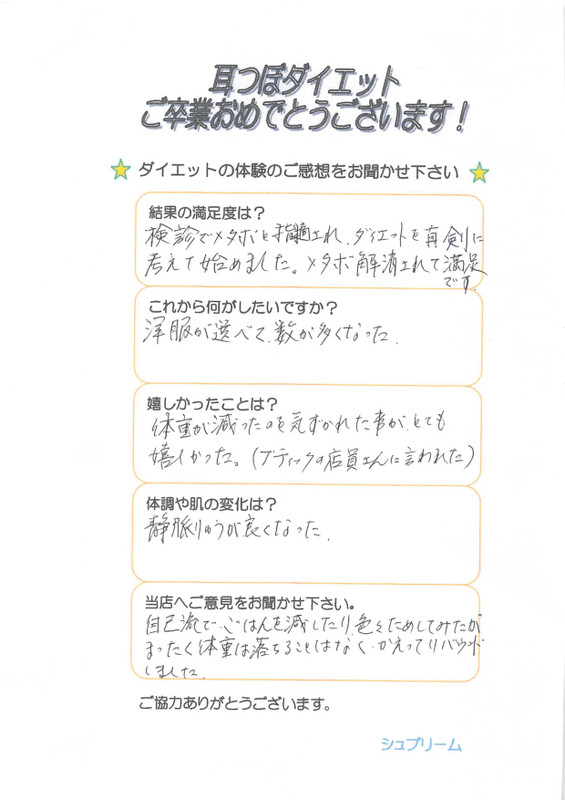 耳つぼダイエット
ご卒業おめでとうございます！
ダイエットの体験のご感想をお聞かせ下さい
結果の満足度は？
検診でメタボを指摘され、ダイエットを真剣に
考えて始めました。メタボ解消されて満足
です。
これから何がしたいですか？
洋服が選べて、数が多くなった。
嬉しかったことは？
体重が減ったのを気ずかれた事が、とても
嬉しかった。(ブティックの店員さんに言われた)
体調や肌の変化は？
静脈りゅうが良くなった。
当店へご意見をお聞かせ下さい。
自己流で、ごはんを減したり、色々ためしてみたが
まったく体重は落ちることはなく、かえってリバウンド
しました。
ご協力ありがとうございます。
シュプリーム